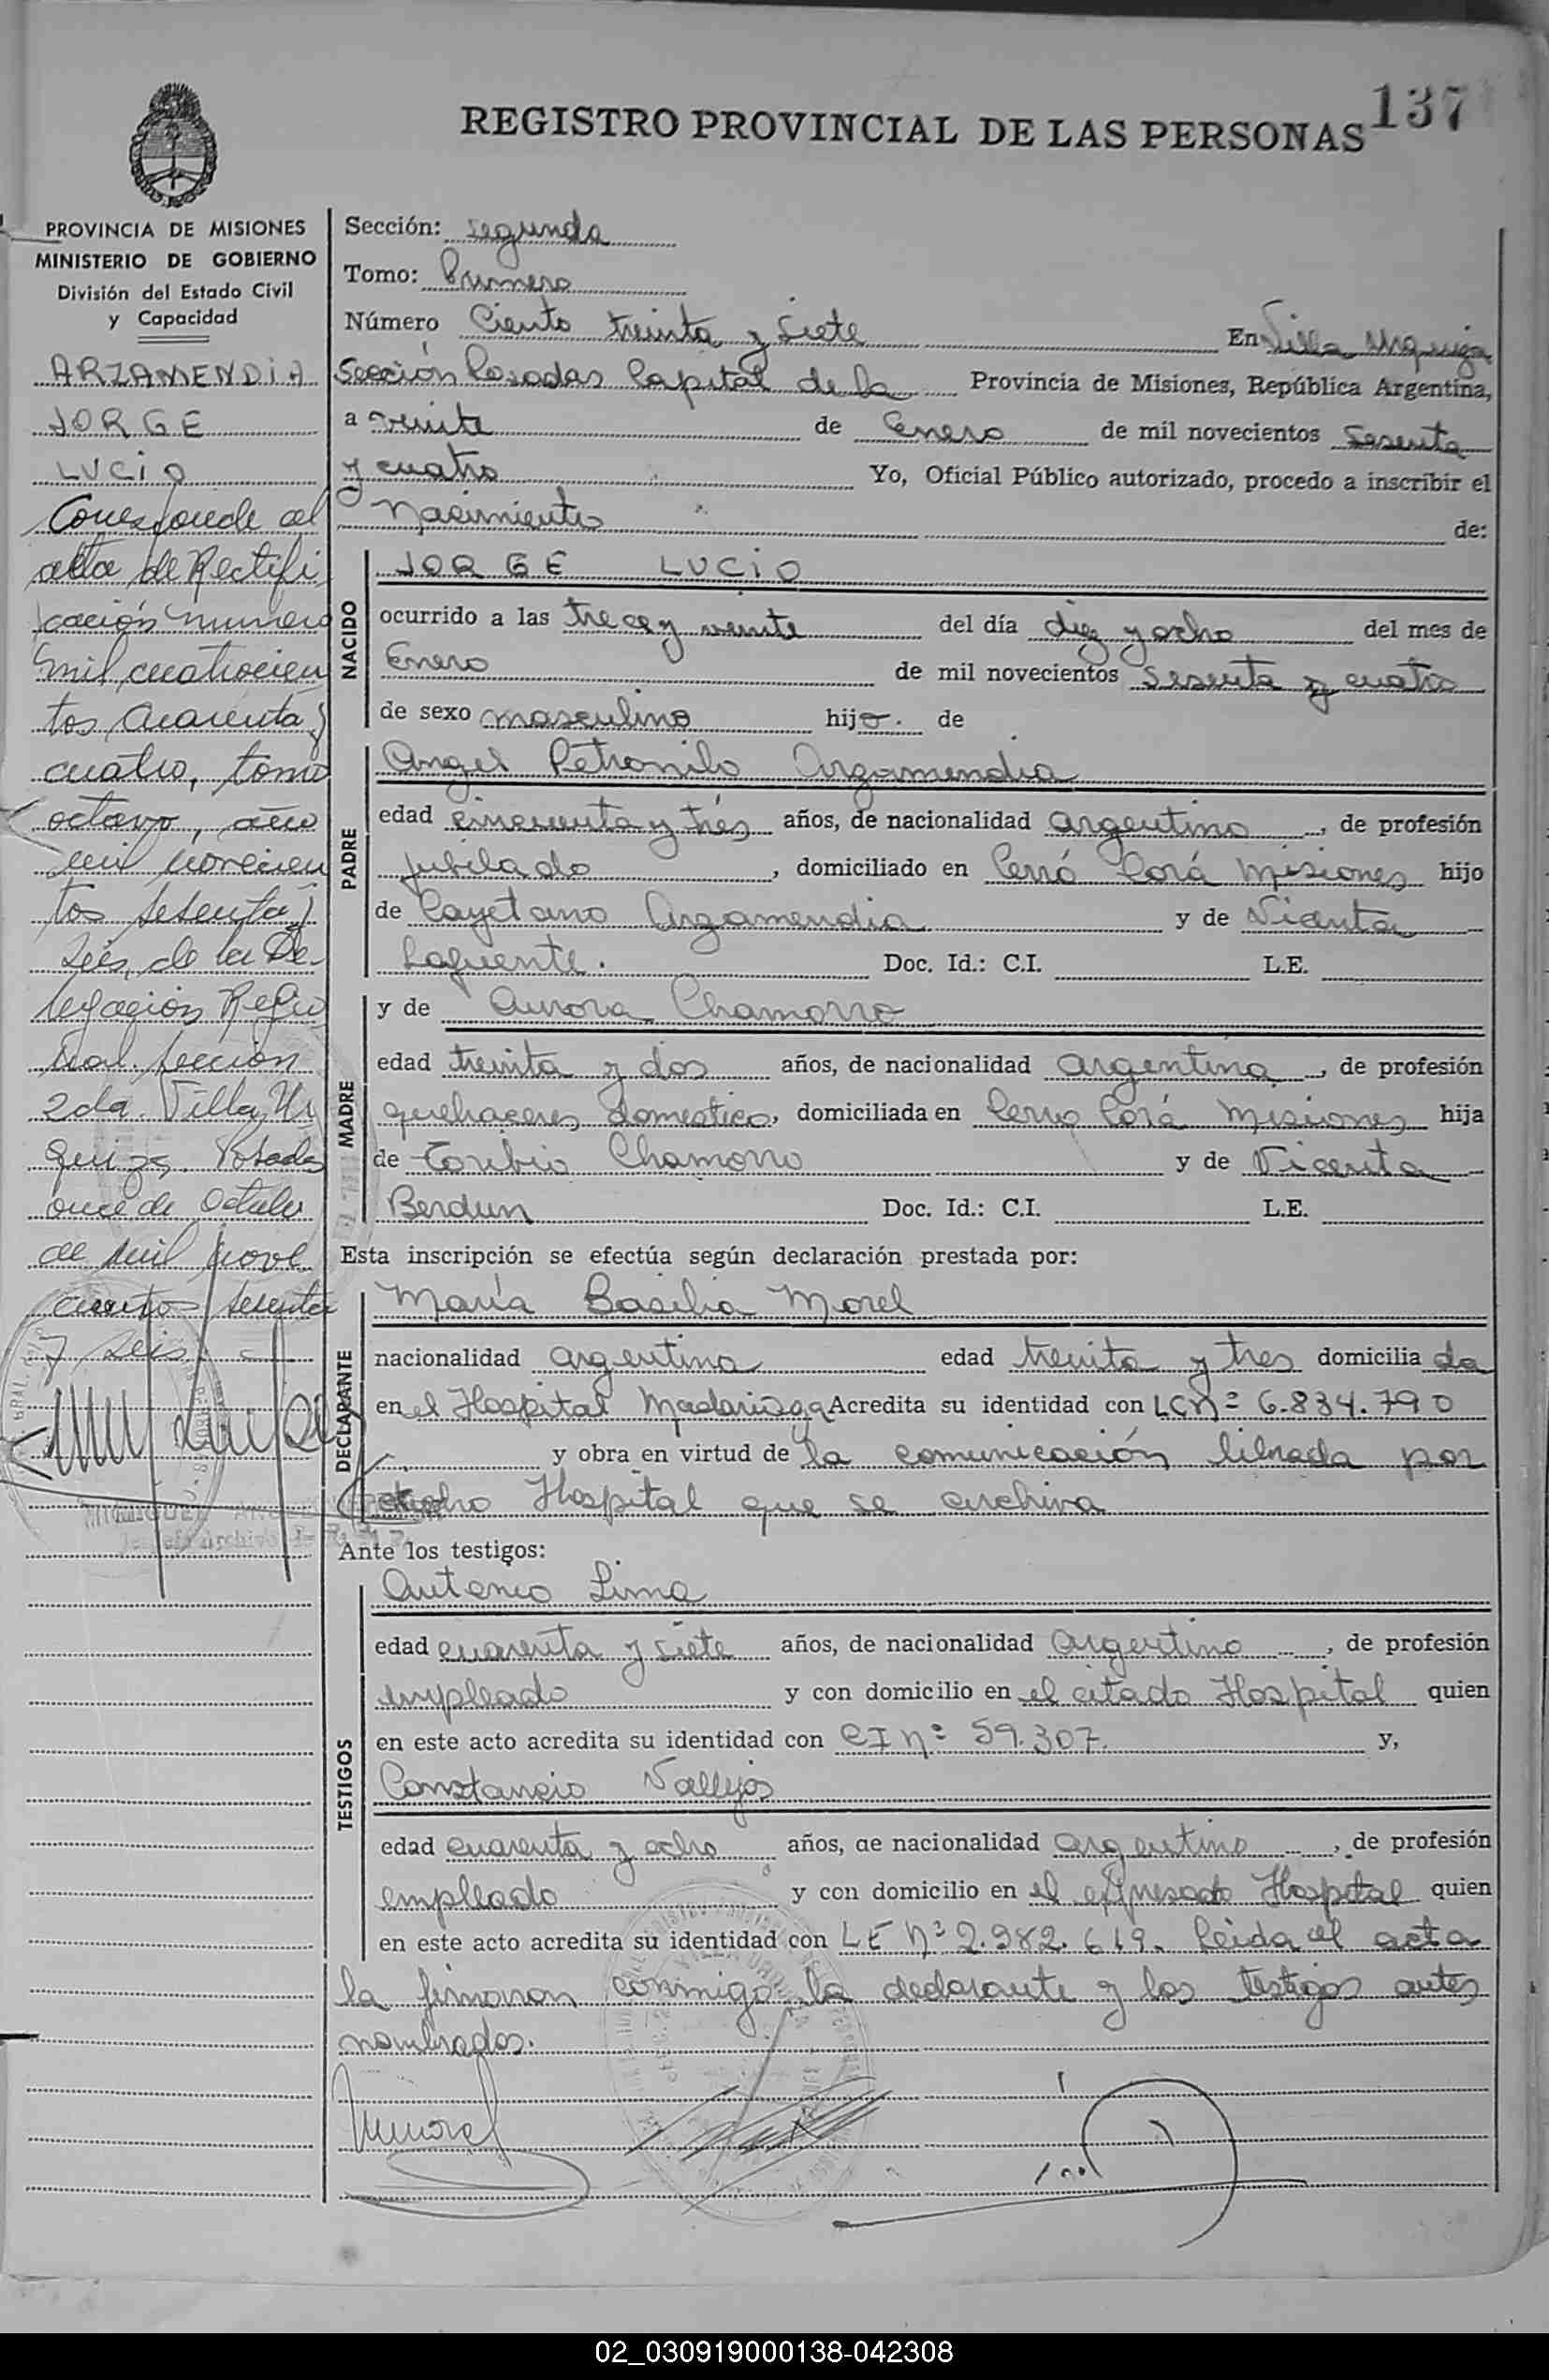 137
REGISTRO PROVINCIAL DE LAS PERSONAS
PROVINCIA DE MISIONES
MINISTERIO DE GOBIERNO
División del Estado Civil
y Capacidad
ARZAMENDIA
JORGE
LUCIO
Corresponde al
acta de Rectifi
cación número
mil cuatrocien
tos cuarenta y
cuatro, tomo
octavo, año
mil novecien
tos setenta y
seis, de la De-
legación Regio
nal Sección
2da. Villa Ur
quiza. Posadas
once de Octubre
de mil nove
cientos setenta
y seis.
Sección: segunda
Tomo: Primero
Número Ciento treinta y siete En Villa Urquiza
Sección Posadas Capital de la Provincia de Misiones, República Argentina,
a veinte de Enero de mil novecientos Sesenta
y cuatro Yo, Oficial Público autorizado, procedo a inscribir el
nacimiento de:
NACIDO
JORGE LUCIO
ocurrido a las trece y veinte del día diez y ocho del mes de
Enero de mil novecientos sesenta y cuatro
de sexo masculino hijo. de
PADRE
Angel Petronilo Arzamendia
edad cincuenta y tres años, de nacionalidad argentino, de profesión
jubilado, domiciliado en Cerró Corá Misiones hijo
de Cayetano Arzamendia y de Vicenta
Lafuente. Doc. Id.: C.I. L.E.
MADRE
y de Aurora Chamorro
edad treinta y dos años, de nacionalidad argentina, de profesión
quehaceres domestico, domiciliada en Cerro Corá Misiones hija
de Toribio Chamorro y de Vicenta
Berdun Doc. Id.: C.I. L.E.
Esta inscripción se efectúa según declaración prestada por:
DECLARANTE
María Basilia Morel
nacionalidad argentina edad treinta y tres domicilia da
en el Hospital Madariaga Acredita su identidad con LC Nº 6.834.790
y obra en virtud de la comunicación librada por
dicho Hospital que se archiva
Ante los testigos:
TESTIGOS
Antonio Lima
edad cuarenta y siete años, de nacionalidad argentino, de profesión
empleado y con domicilio en el citado Hospital quien
en este acto acredita su identidad con CI nº 59.307. y,
Constancio Vallejos
edad cuarenta y ocho años, de nacionalidad argentino, de profesión
empleado y con domicilio en el expresado Hospital quien
en este acto acredita su identidad con LE Nº 2.982.619. Leida el acta
la firmaron conmigo, la declarante y los testigos antes
nombrados.
02_030919000138-042308